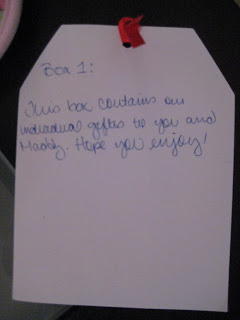 Box 1:
This box contains our
individual gifts to you and
Maddy. Hope you enjoy!